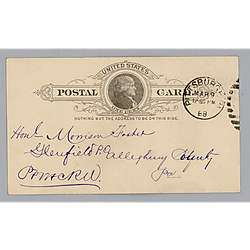 UNITED STATES
POSTAL CARD
ONE CENT
NOTHING BUT THE ADDRESS TO BE ON THIS SIDE.
PITTSBURGH
MAR 9
88
Hon. Morrison Foster
Glenfield P.O. Allegheny County
Pa